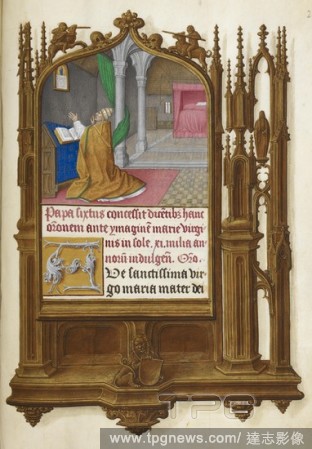 Papa sixtus concessit dicetibs hanc
oronem ante ymaginem marie virgi
nis in sole. xi. milia an
norum indulgen. Oro.
Ave sanctissima vir
go maria mater dei
TPG
www.tpgnews.com/ 達志影像